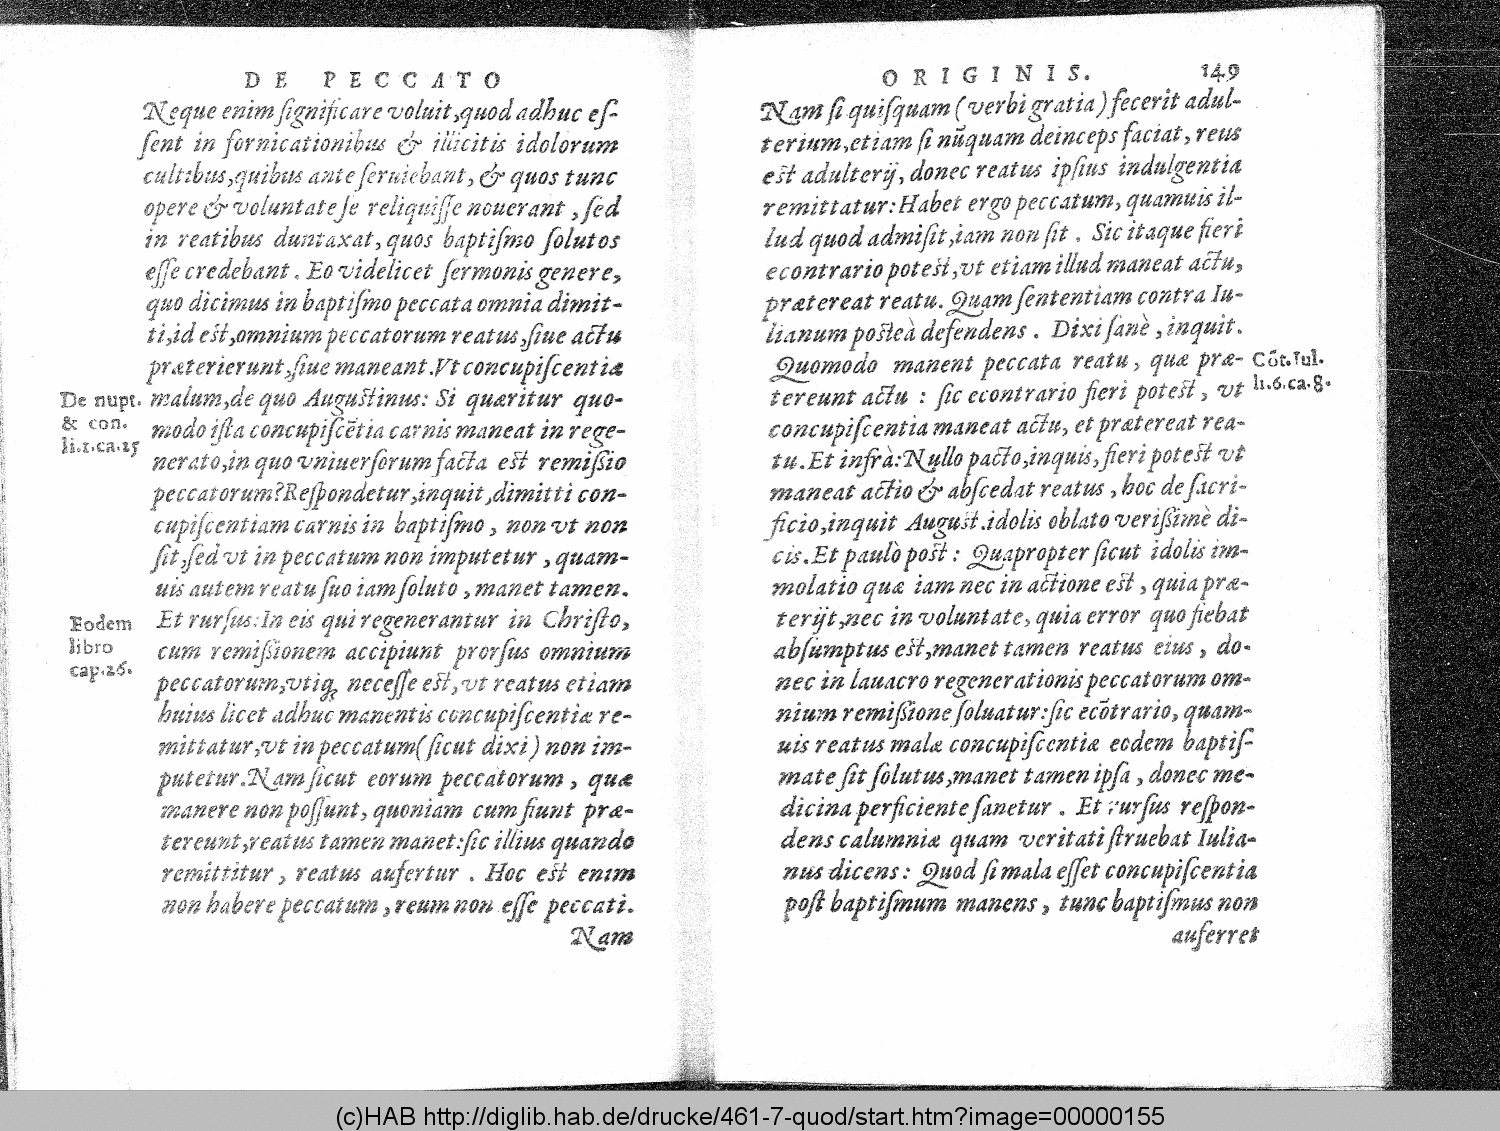 DE PECCATO
Neque enim ſignificare voluit,quod adhuc eſ-
ſent in fornicationibus & illicitis idolorum
cultibus,quibus ante ſeruiebant, & quos tunc
opere & voluntate ſe reliquiſſe nouerant , ſed
in reatibus duntaxat, quos baptiſmo ſolutos
eſſe credebant . Eo videlicet ſermonis genere,
quo dicimus in baptiſmo peccata omnia dimit-
ti,id est,omnium peccatorum reatus,ſiue actu
præterierunt,ſiue maneant.Vt concupiſcentiæ
De nupt.
& con.
li.1.ca.25
malum,de quo Augustinus: Si quæritur quo-
modo iſta concupiſcētia carnis maneat in rege-
nerato,in quo vniuerſorum facta est remiſsio
peccatorum?Reſpondetur,inquit,dimitti con-
cupiſcentiam carnis in baptiſmo , non vt non
ſit,ſed vt in peccatum non imputetur , quam-
uis autem reatu ſuo iam ſoluto , manet tamen.
Eodem
libro
cap.26.
Et rurſus:In eis qui regenerantur in Chriſto,
cum remiſsionem accipiunt prorſus omnium
peccatorum,vtiq; neceſſe est, vt reatus etiam
huius licet adhuc manentis concupiſcentiæ re-
mittatur,vt in peccatum(ſicut dixi) non im-
putetur.Nam ſicut eorum peccatorum , quæ
manere non poſſunt, quoniam cum fiunt præ-
tereunt,reatus tamen manet:ſic illius quando
remittitur , reatus aufertur . Hoc est enim
non habere peccatum , reum non eſſe peccati.
Nam
ORIGINIS. 149
Nam ſi quiſquam (verbi gratia) fecerit adul-
terium,etiam ſi nūquam deinceps faciat, reus
est adulterij, donec reatus ipſius indulgentia
remittatur:Habet ergo peccatum, quamuis il-
lud quod admiſit,iam non ſit . Sic itaque fieri
econtrario potest,vt etiam illud maneat actu,
prætereat reatu. Quam ſententiam contra Iu-
lianum posteà defendens . Dixi ſanè , inquit.
Quomodo manent peccata reatu, quæ præ-
Cōt.Iul.
li.6.ca.8.
tereunt actu : ſic econtrario fieri potest , vt
concupiſcentia maneat actu, et prætereat rea-
tu.Et infrà:Nullo pacto,inquis,fieri potest vt
maneat actio & abſcedat reatus , hoc de ſacri-
ficio,inquit August.idolis oblato veriſsimè di-
cis.Et paulò post : Quapropter ſicut idolis im-
molatio quæ iam nec in actione est , quia præ-
terijt,nec in voluntate, quia error quo fiebat
abſumptus est,manet tamen reatus eius , do-
nec in lauacro regenerationis peccatorum om-
nium remiſsione ſoluatur:ſic ecōtrario, quam-
uis reatus malæ concupiſcentiæ eodem baptiſ-
mate ſit ſolutus,manet tamen ipſa , donec me-
dicina perficiente ſanetur . Et rurſus reſpon-
dens calumniæ quam veritati ſtruebat Iulia-
nus dicens : Quod ſi mala eſſet concupiſcentia
poſt baptiſmum manens , tunc baptiſmus non
auferret
(c)HAB http://diglib.hab.de/drucke/461-7-quod/start.htm?image=00000155